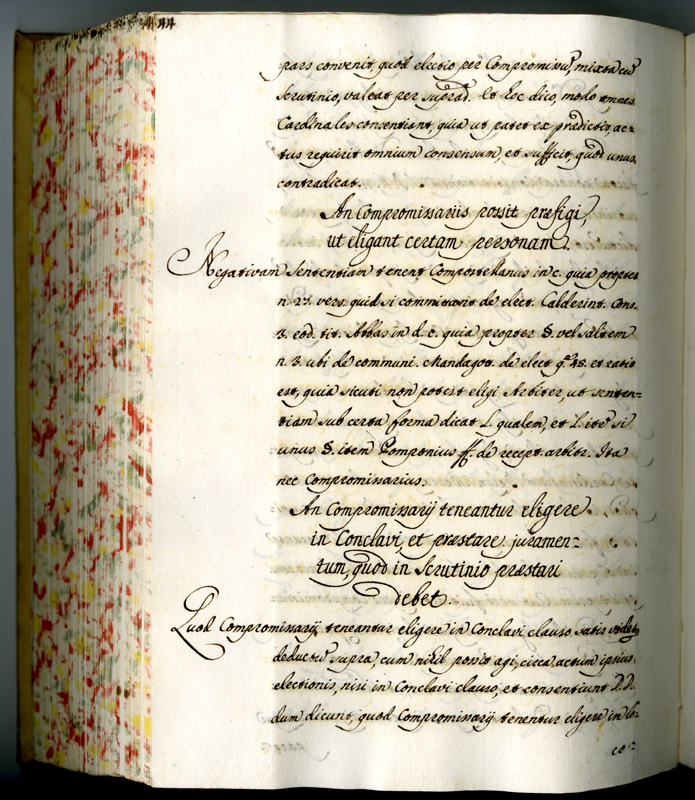 pars convenit, quod electio per Compromissũ, mixta cũ
Scrutinio, valeat per suprad. et hoc dico, modo omnes
Cardinales consentiant, quia ut patet ex prædictis, ac=
tus requirit omnium consensum, et sufficit, quod unus
contradicat.
An Compromissariis possit prefigi,
ut eligant certam personam.
Negativam sententiam tenent Compostellanus in c. quia propter
n. 23. vers. quid si committunt de elect. Calderint. Cons.
3. eod. tit. Abbas in d. c. quia propter §. vel saltem
n. 3. ubi de communi. Mandagot. de elect. 45. et ratio
est, quia sicuti non potest eligi Arbiter, ut senten=
tiam sub certa forma dicat L. qualem, et L. ite si
unus §. item Pomponius ff. de recept. arbitr. Ita
nec Compromissarius.
An Compromissarij teneantur eligere
in Conclavi, et præstare juramen=
tum, quod in Scrutinio præstari
debet.
Quod Compromissarij teneantur eligere in Conclavi clauso satis
deductũ supra, cum nihil possit agi, circa actum ipsius
electionis, nisi in Conclavi clauso, et consentiunt D.D.
dum dicunt, quod Compromissarij tenentur eligere in lo=
co